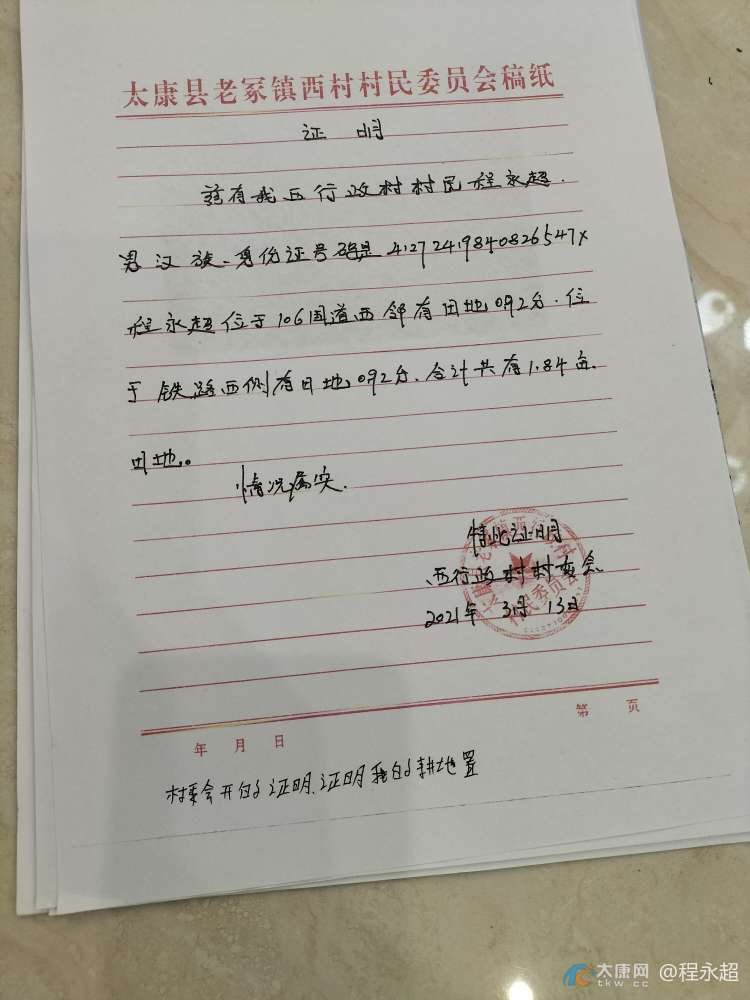 太康县老冢镇西村村民委员会稿纸
证 明
兹有我西行政村村民程永超.
男汉族、身份证号码是41272419840826547X
程永超位于106国道西邻有田地092分.位
于铁路西侧有田地092分、合计共有1.84亩、
田地。
情况属实.
特此证明
西行政村村委会
2021年 3月 13日
村民委员会
第 页
年 月 日
村委会开的证明、证明我的耕地置
太康网
tkw.cc @程永超